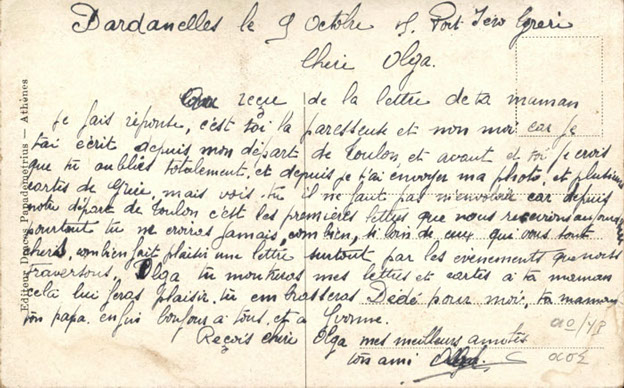 Dardanelles le 9 Octobre
Port Iero
Chere Olga.
reçue de la lettre de ta maman
je fais réponse, c'est toi la paresseuse et non moi car je
t'ai écrit depuis mon départ de Toulon, et avant et toi je crois
que tu oublies totalement, et depuis je t'ai envoyer ma photo, et plusieurs
cartes de Grèce, mais vois tu il ne faut pas car depuis
notre départ de Toulon c'est les premières lettres que nous recevions
pourtout tu ne croiras jamais, combien, si loin de ceux qui vous sont
chers, combien fait plaisir une lettre surtout par les évenements que nous
traversons, Olga tu montreras mes lettres et cartes à ta maman
cela lui feras plaisir, tu embrasseras Dédé pour moi, ta maman
ton papa. enfin bonjour à tous, et a Yvonne.
Reçois chere Olga mes meilleurs amitiés
ton ami
Editeur Papademetrius — Athènes